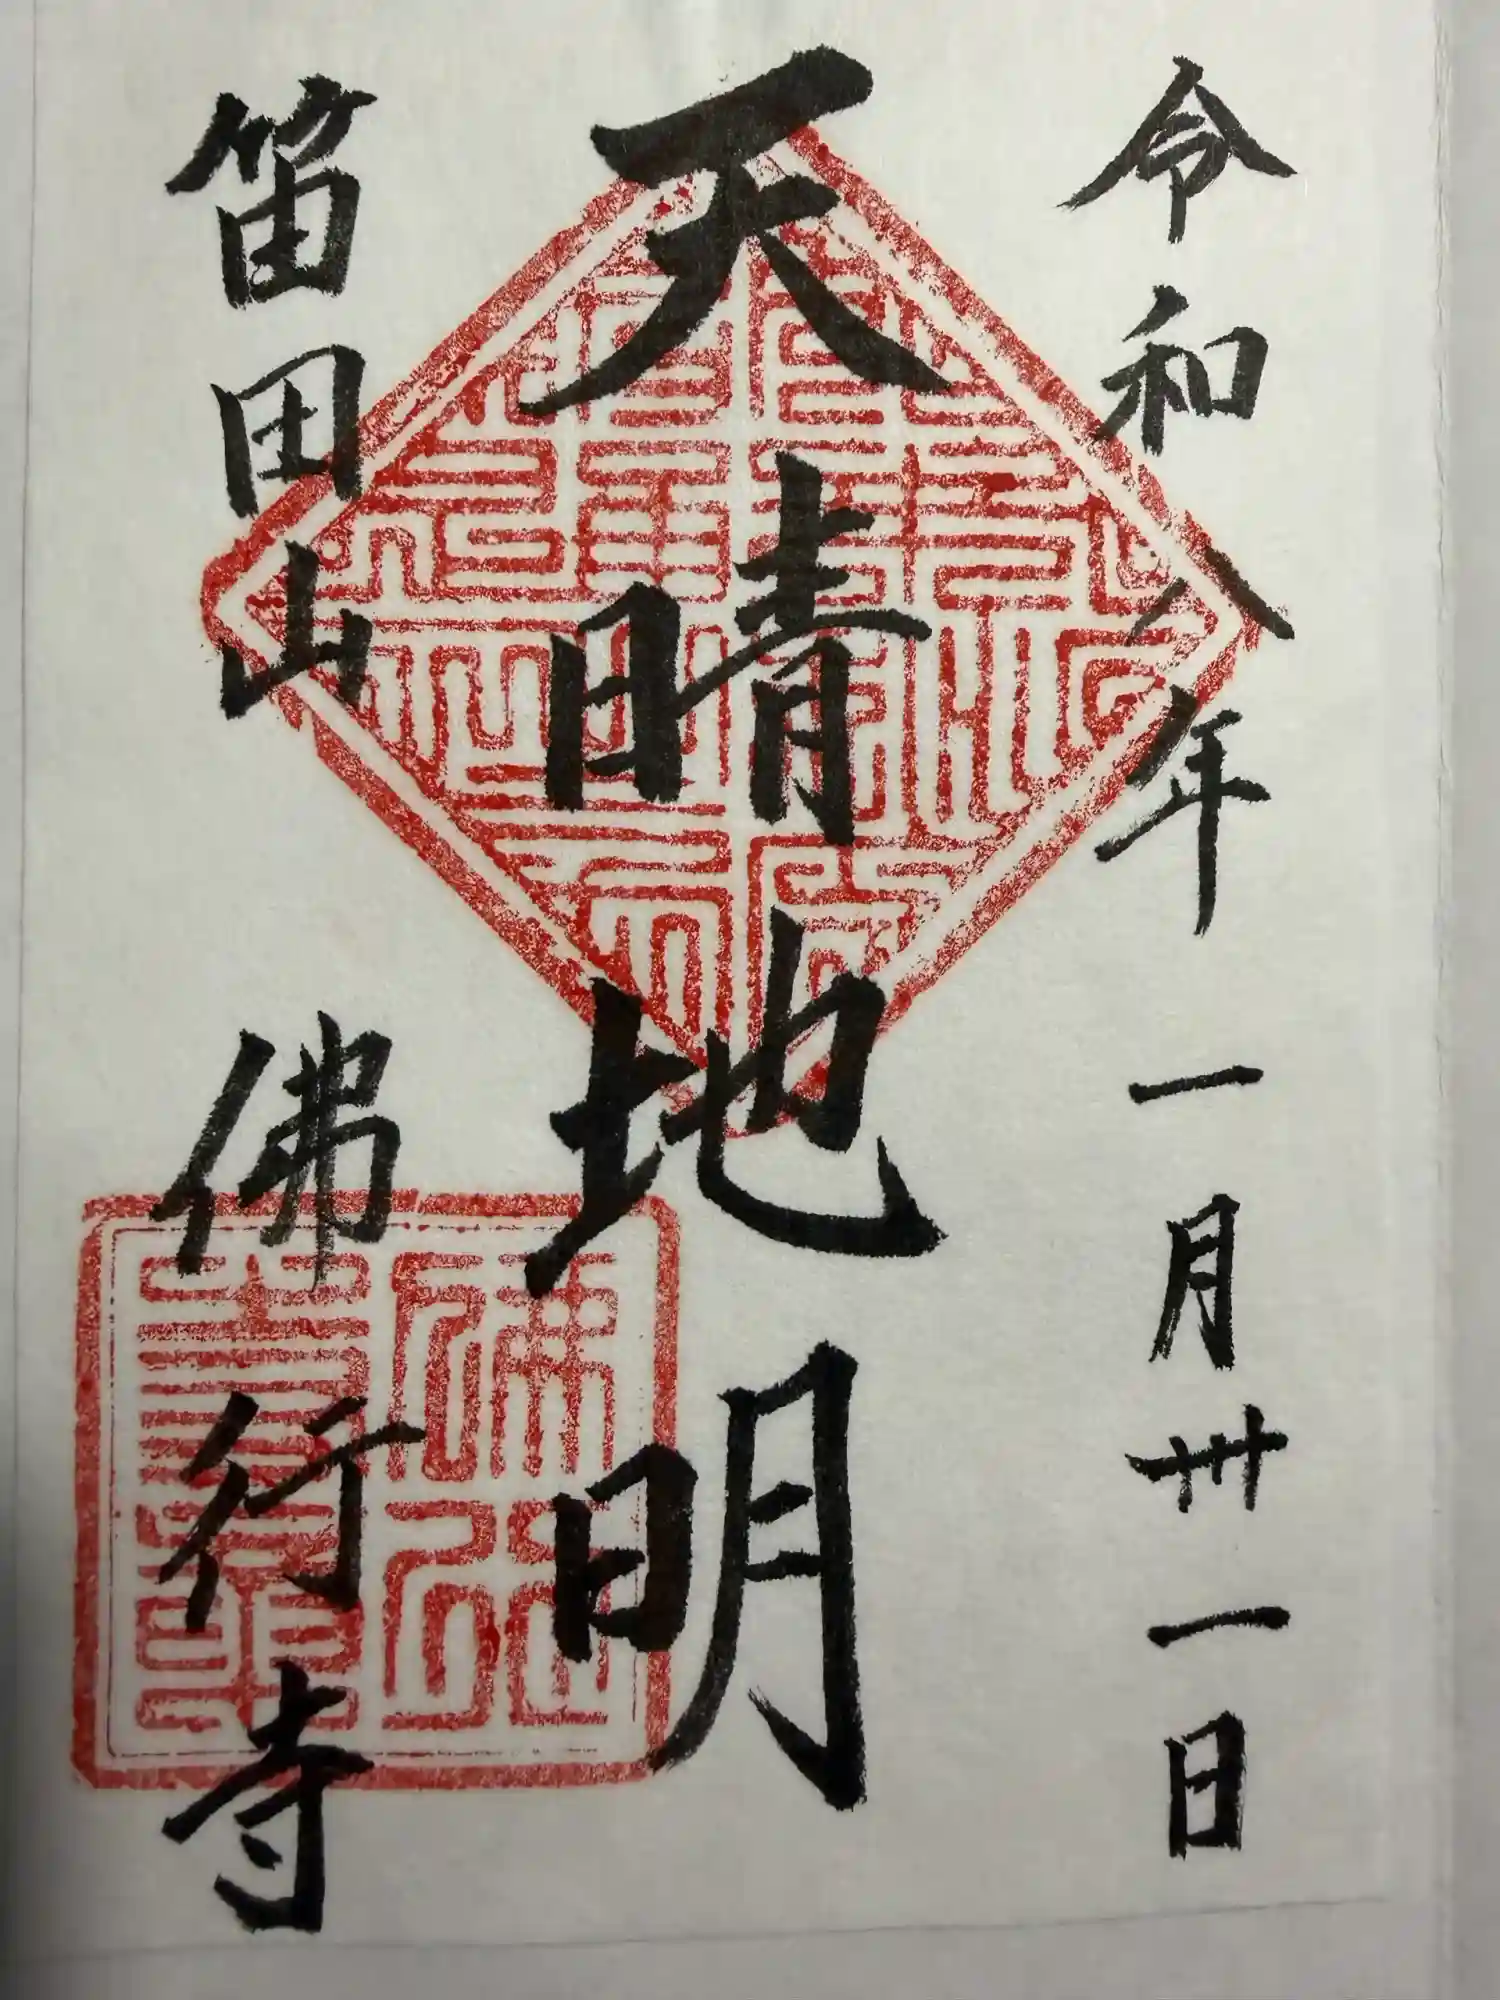 令和八年一月卅一日
天晴地明
笛田山佛行寺